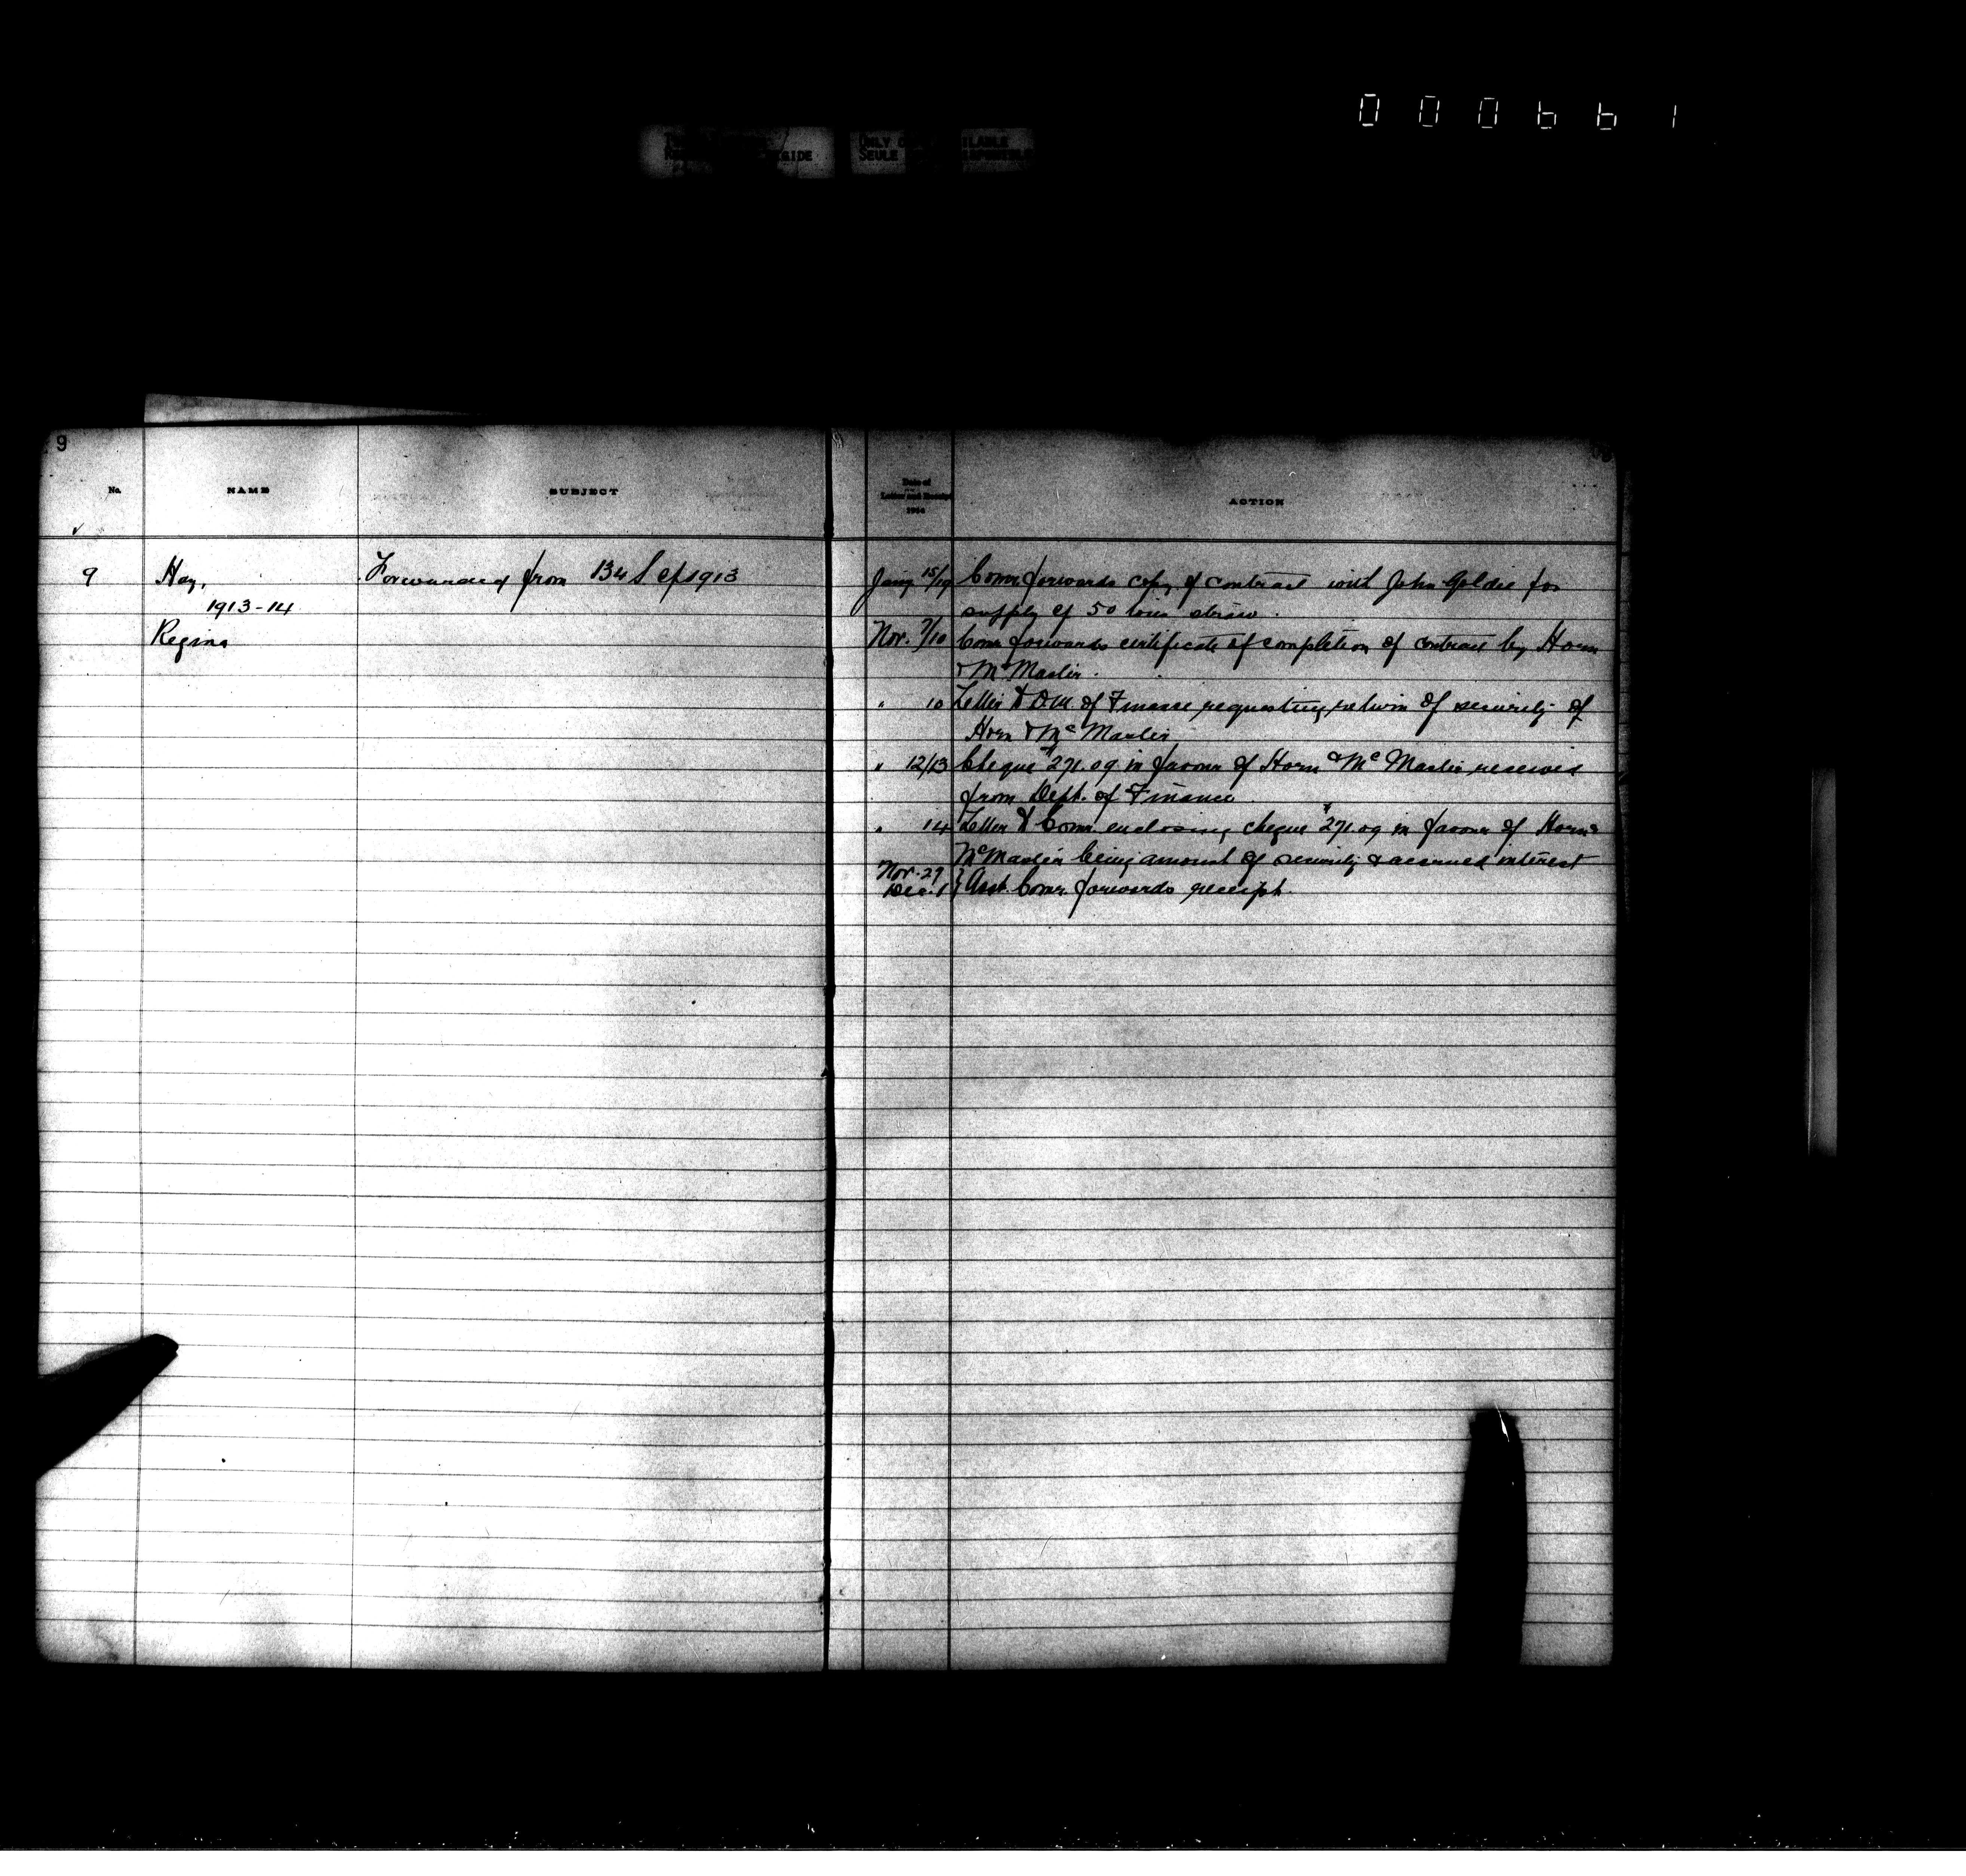 000661
RIGIDE
ONLY
SEULE
9
No.
NAME
SUBJECT
Date of
Letter and Receipt
1914
ACTION
9 Hay, Forwarded from 134 S of 1913
1913-14
Regina
Jany 15/19 Comr forwards copy of contract with John Goldie for
supply of 50 tons straw.
Nov. 7/10 Comr forwards certificate of completion of contract by Horn
& McMaster.
" 10 Letter to D.M. of Finance requesting return of security of
Horn & McMaster
" 12/13 Cheque $271.09 in favour of Horn & McMaster received
from Dept. of Finance.
" 14 Letter to Comr enclosing cheque $271.09 in favour of Horn &
McMaster being amount of security & accrued interest
Nov. 29
Dec. 1 } Asst. Comr. forwards receipt.